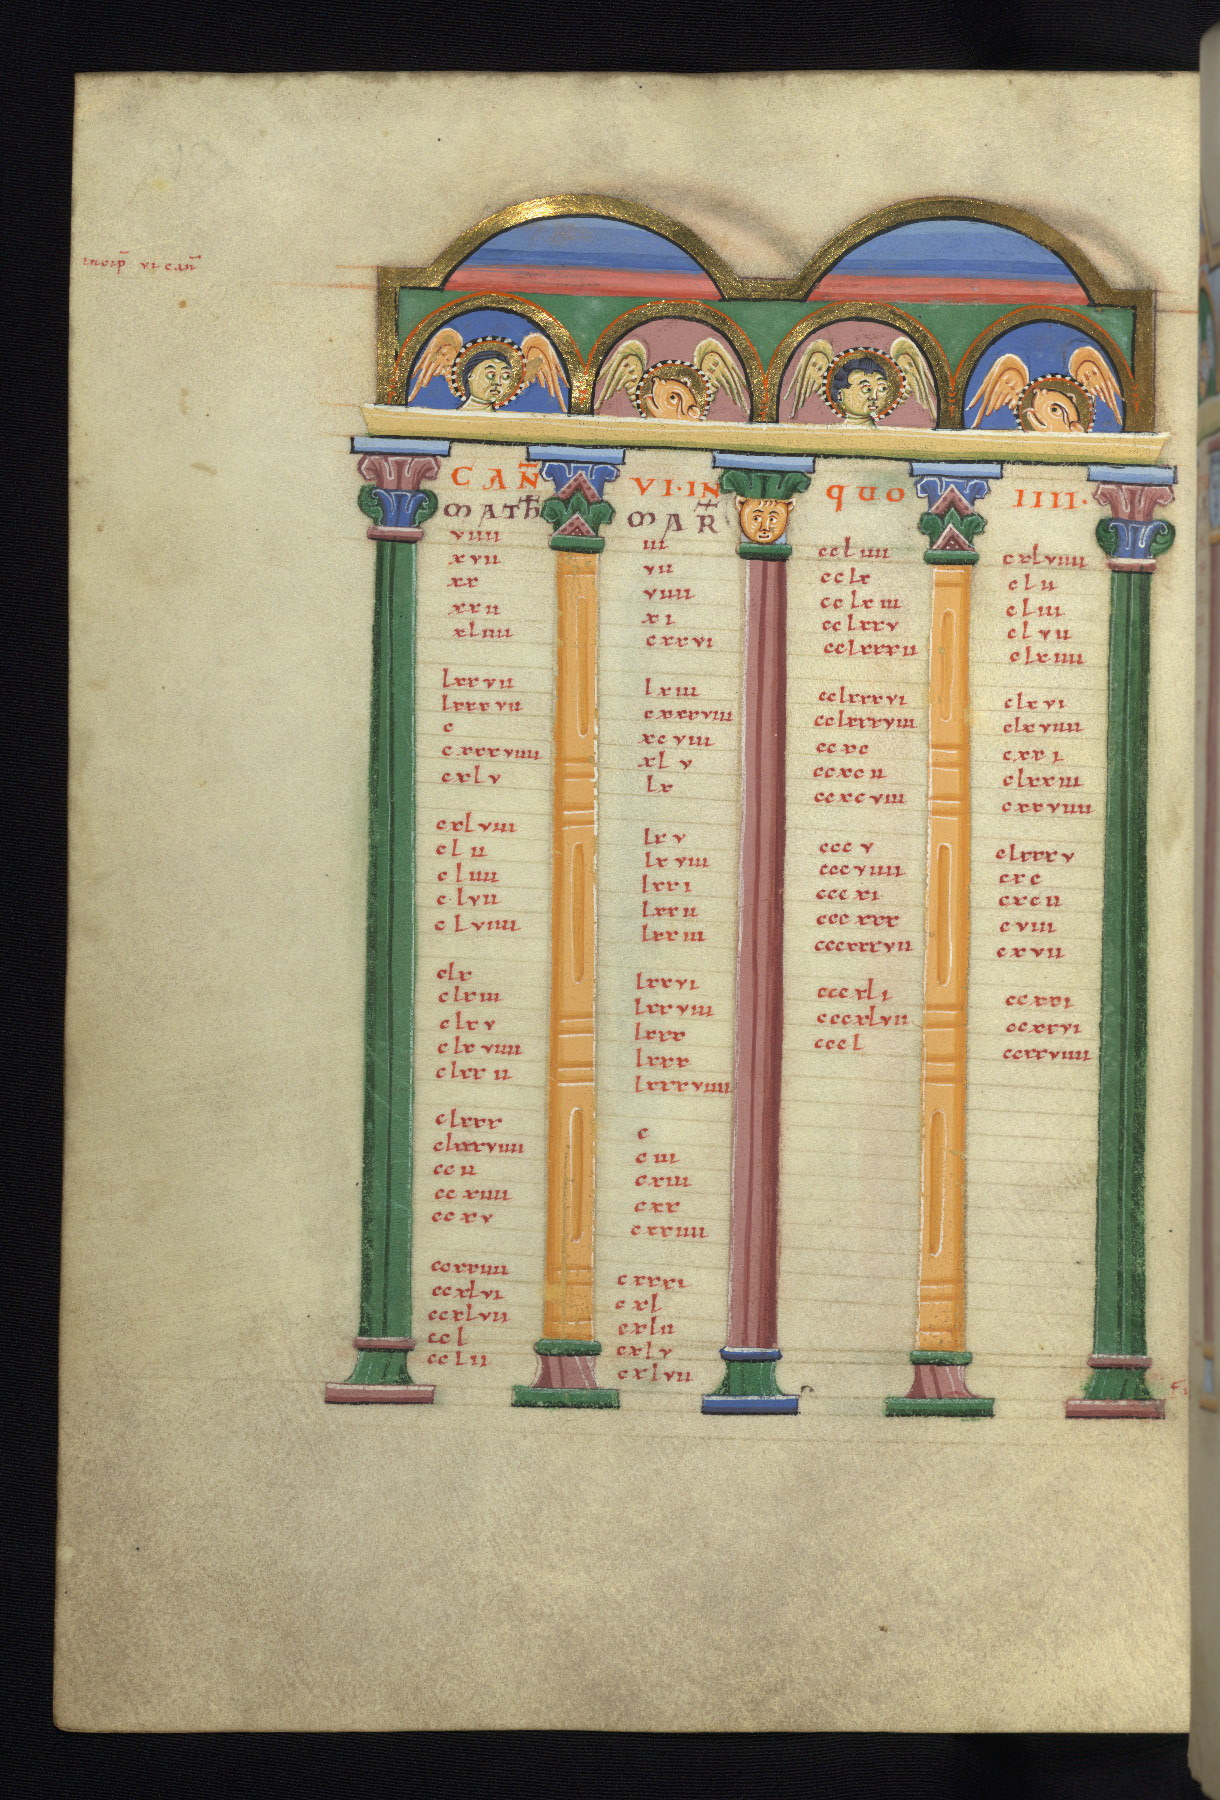 incip̄ vi can̄
CAN̄ VI·IN QUO IIII·
MATH MAR
viiii iii ccliiii cxlviiii
xvii vii cclx clii
xx viiii cclxiii cliii
xxii xi cclxxv clvii
xliiii cxxvi cclxxxii clxiiii
lxxvii lxiii cclxxxvi clxvi
lxxxvii cxxxviii cclxxxviii clxviiii
c xcviii ccxc cxxi
cxxxviiii xlv ccxcii clxxiii
cxlv lx ccxcviii cxxviiii
cxlviii lxv cccv clxxxv
clii lxviii cccviiii cxc
cliiii lxxi cccxi cxcii
clvii lxxii cccxxx cviii
clviiii lxxiii cccxxxvii cxvii
clx lxxvi cccxli ccxxi
clxiii lxxviii cccxlvii ccxxvi
clxv lxxx cccl ccxxviiii
clxviiii lxxx
clxxii lxxxviiii
clxxx c
clxxxviiii ciii
ccii cxiii
ccxiiii cxx
ccxv cxxiiii
ccxxiiii cxxxi
ccxlvi cxl
ccxlvii cxlii
ccl cxlv
cclii cxlvii